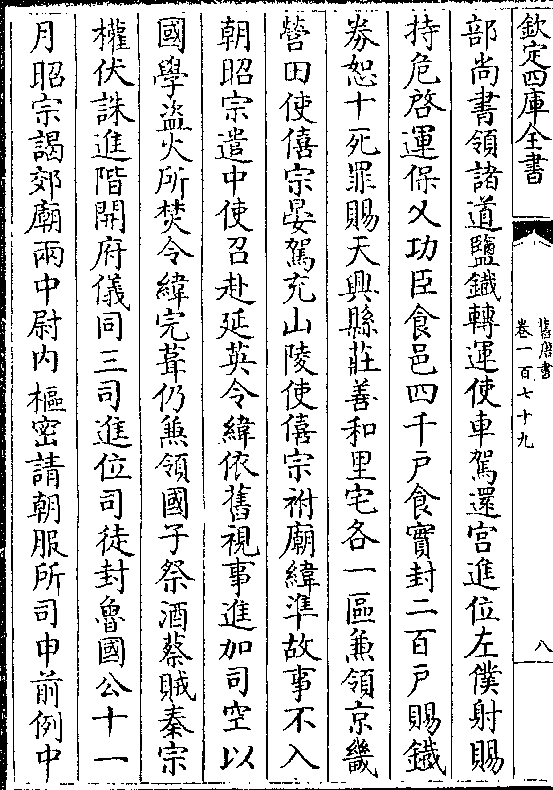 欽定四庫全書
舊唐書
卷一百七十九
八
部尚書領諸道鹽鐵轉運使車駕還宮進位左僕射賜
持危啓運保乂功臣食邑四千戶食實封二百戶賜鐵
券恕十死罪賜天興縣莊善和里宅各一區兼領京畿
營田使僖宗晏駕充山陵使僖宗祔廟緯準故事不入
朝昭宗遣中使召赴延英令緯依舊視事進加司空以
國學盜火所焚令緯完葺仍兼領國子祭酒蔡賊秦宗
權伏誅進階開府儀同三司進位司徒封魯國公十一
月昭宗謁郊廟兩中尉内樞密請朝服所司申前例中